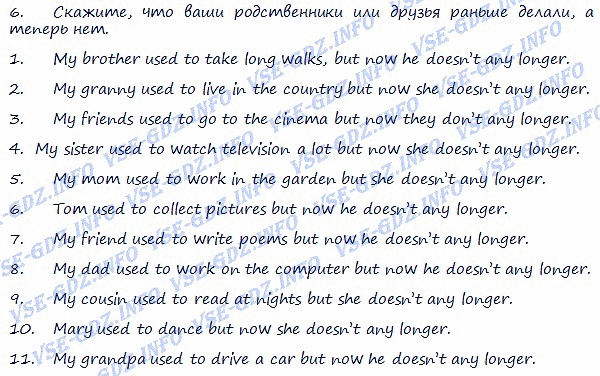 6. Скажите, что ваши родственники или друзья раньше делали, а
теперь нет.
1. My brother used to take long walks, but now he doesn't any longer.
2. My granny used to live in the country but now she doesn't any longer.
3. My friends used to go to the cinema but now they don't any longer.
4. My sister used to watch television a lot but now she doesn't any longer.
5. My mom used to work in the garden but she doesn't any longer.
6. Tom used to collect pictures but now he doesn't any longer.
7. My friend used to write poems but now he doesn't any longer.
8. My dad used to work on the computer but now he doesn't any longer.
9. My cousin used to read at nights but she doesn't any longer.
10. Mary used to dance but now she doesn't any longer.
11. My grandpa used to drive a car but now he doesn't any longer.
VSE-GDZ.INFO